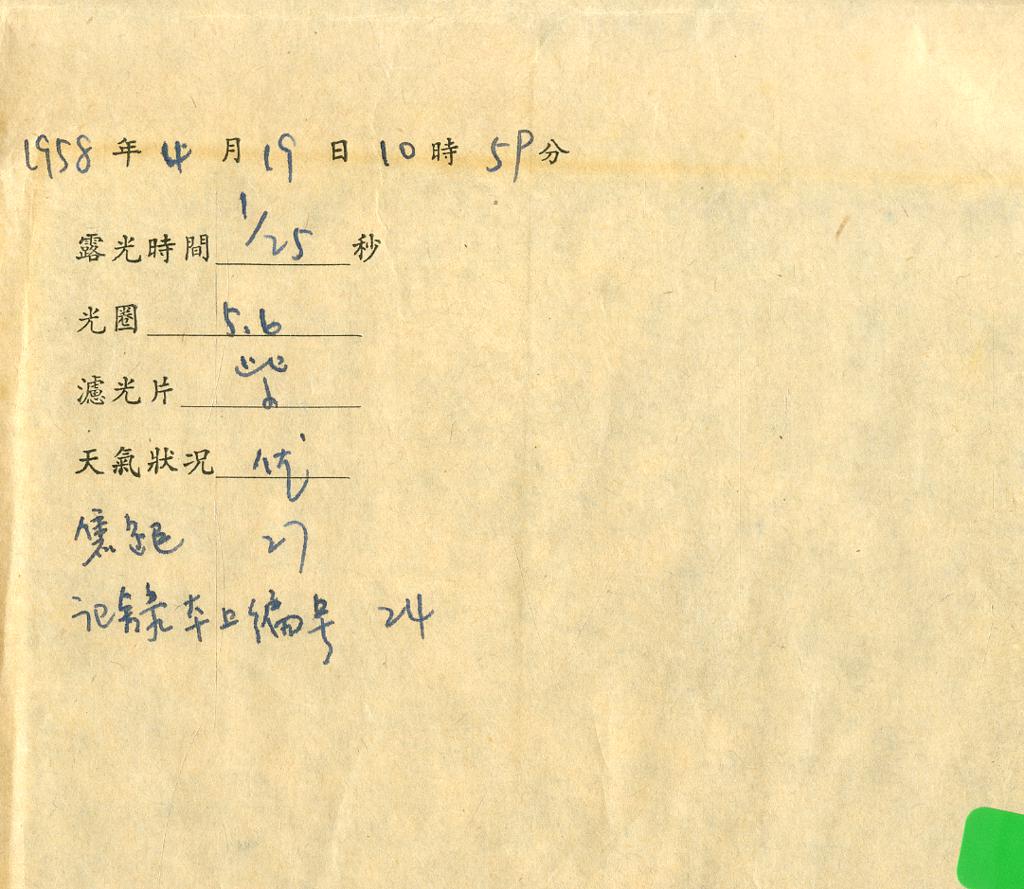 1958 年 4 月 19 日 10 時 59 分
露光時間 1/25 秒
光圈 5.6
濾光片
天氣狀况 优
27
记錄本上编号 24